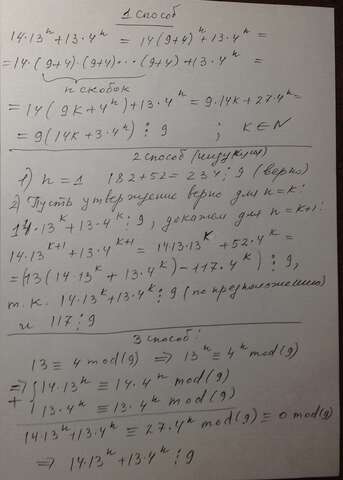 1 способ
14·13ⁿ+13·4ⁿ = 14(9+4)ⁿ+13·4ⁿ =
=14·(9+4)·(9+4)···(9+4)+13·4ⁿ =
n скобок
=14(9k+4ⁿ)+13·4ⁿ=9·14k+27·4ⁿ=
=9(14k+3·4ⁿ)⋮9 ; k∈N
2 способ (индукция)
1) n=1 182+52=234⋮9 (верно)
2) Пусть утверждение верно для n=k:
14·13ᵏ+13·4ᵏ⋮9, докажем для n=k+1:
14·13ᵏ⁺¹+13·4ᵏ⁺¹=14·13·13ᵏ+52·4ᵏ=
=(13(14·13ᵏ+13·4ᵏ)-117·4ᵏ)⋮9,
т.к. 14·13ᵏ+13·4ᵏ⋮9 (по предположению)
и 117⋮9
3 способ:
13≡4 mod(9) ⇒ 13ⁿ≡4ⁿ mod(9)
⇒ {14·13ⁿ≡14·4ⁿ mod(9)
+ {13·4ⁿ≡13·4ⁿ mod(9)
14·13ⁿ+13·4ⁿ≡27·4ⁿ mod(9)≡0 mod(9)
⇒ 14·13ⁿ+13·4ⁿ⋮9